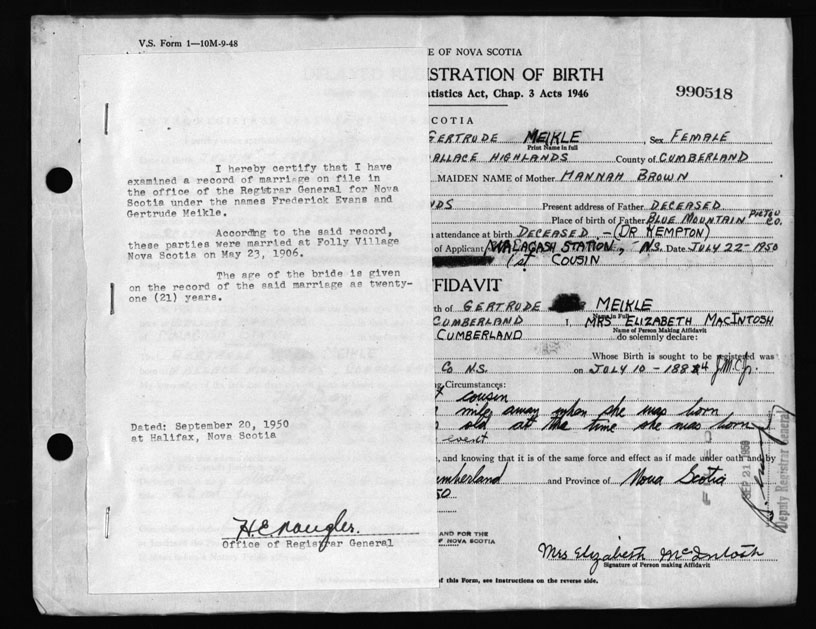 V.S. Form 1—10M-9-48
I hereby certify that I have
examined a record of marriage on file in
the office of the Registrar General for Nova
Scotia under the names Frederick Evans and
Gertrude Meikle.
According to the said record,
these parties were married at Folly Village
Nova Scotia on May 23, 1906.
The age of the bride is given
on the record of the said marriage as twenty-
one (21) years.
Dated: September 20, 1950
at Halifax, Nova Scotia
Office of Registrar General
E OF NOVA SCOTIA
ISTRATION OF BIRTH
tistics Act, Chap. 3 Acts 1946
990518
SCOTIA
GERTRUDE MEIKLE, Sex FEMALE
Print Name in full
ALLACE HIGHLANDS County of CUMBERLAND
MAIDEN NAME of Mother HANNAH BROWN
NDS Present address of Father DECEASED
Place of birth of Father BLUE MOUNTAIN PICTOU CO.
attendance at birth DECEASED - (DR KEMPTON)
of Applicant WALAGASH STATION, N.S. Date JULY 22-1950
1st COUSIN
FFIDAVIT
th of GERTRUDE MEIKLE
CUMBERLAND I, MRS ELIZABETH MACINTOSH
Name in Full
Name of Person Making Affidavit
CUMBERLAND do solemnly declare:
Whose Birth is sought to be registered was
CO N.S. on JULY 10-1884
ng Circumstances:
cousin
mile away when she was born
old at the time she was born
event
, and knowing that it is of the same force and effect as if made under oath and by
umberland and Province of Nova Scotia
50
SEP 21 1950
Deputy Registrar General
AND FOR THE
OF NOVA SCOTIA
Mrs Elizabeth McIntosh
Signature of Person making Affidavit
of this Form, see Instructions on the reverse side.